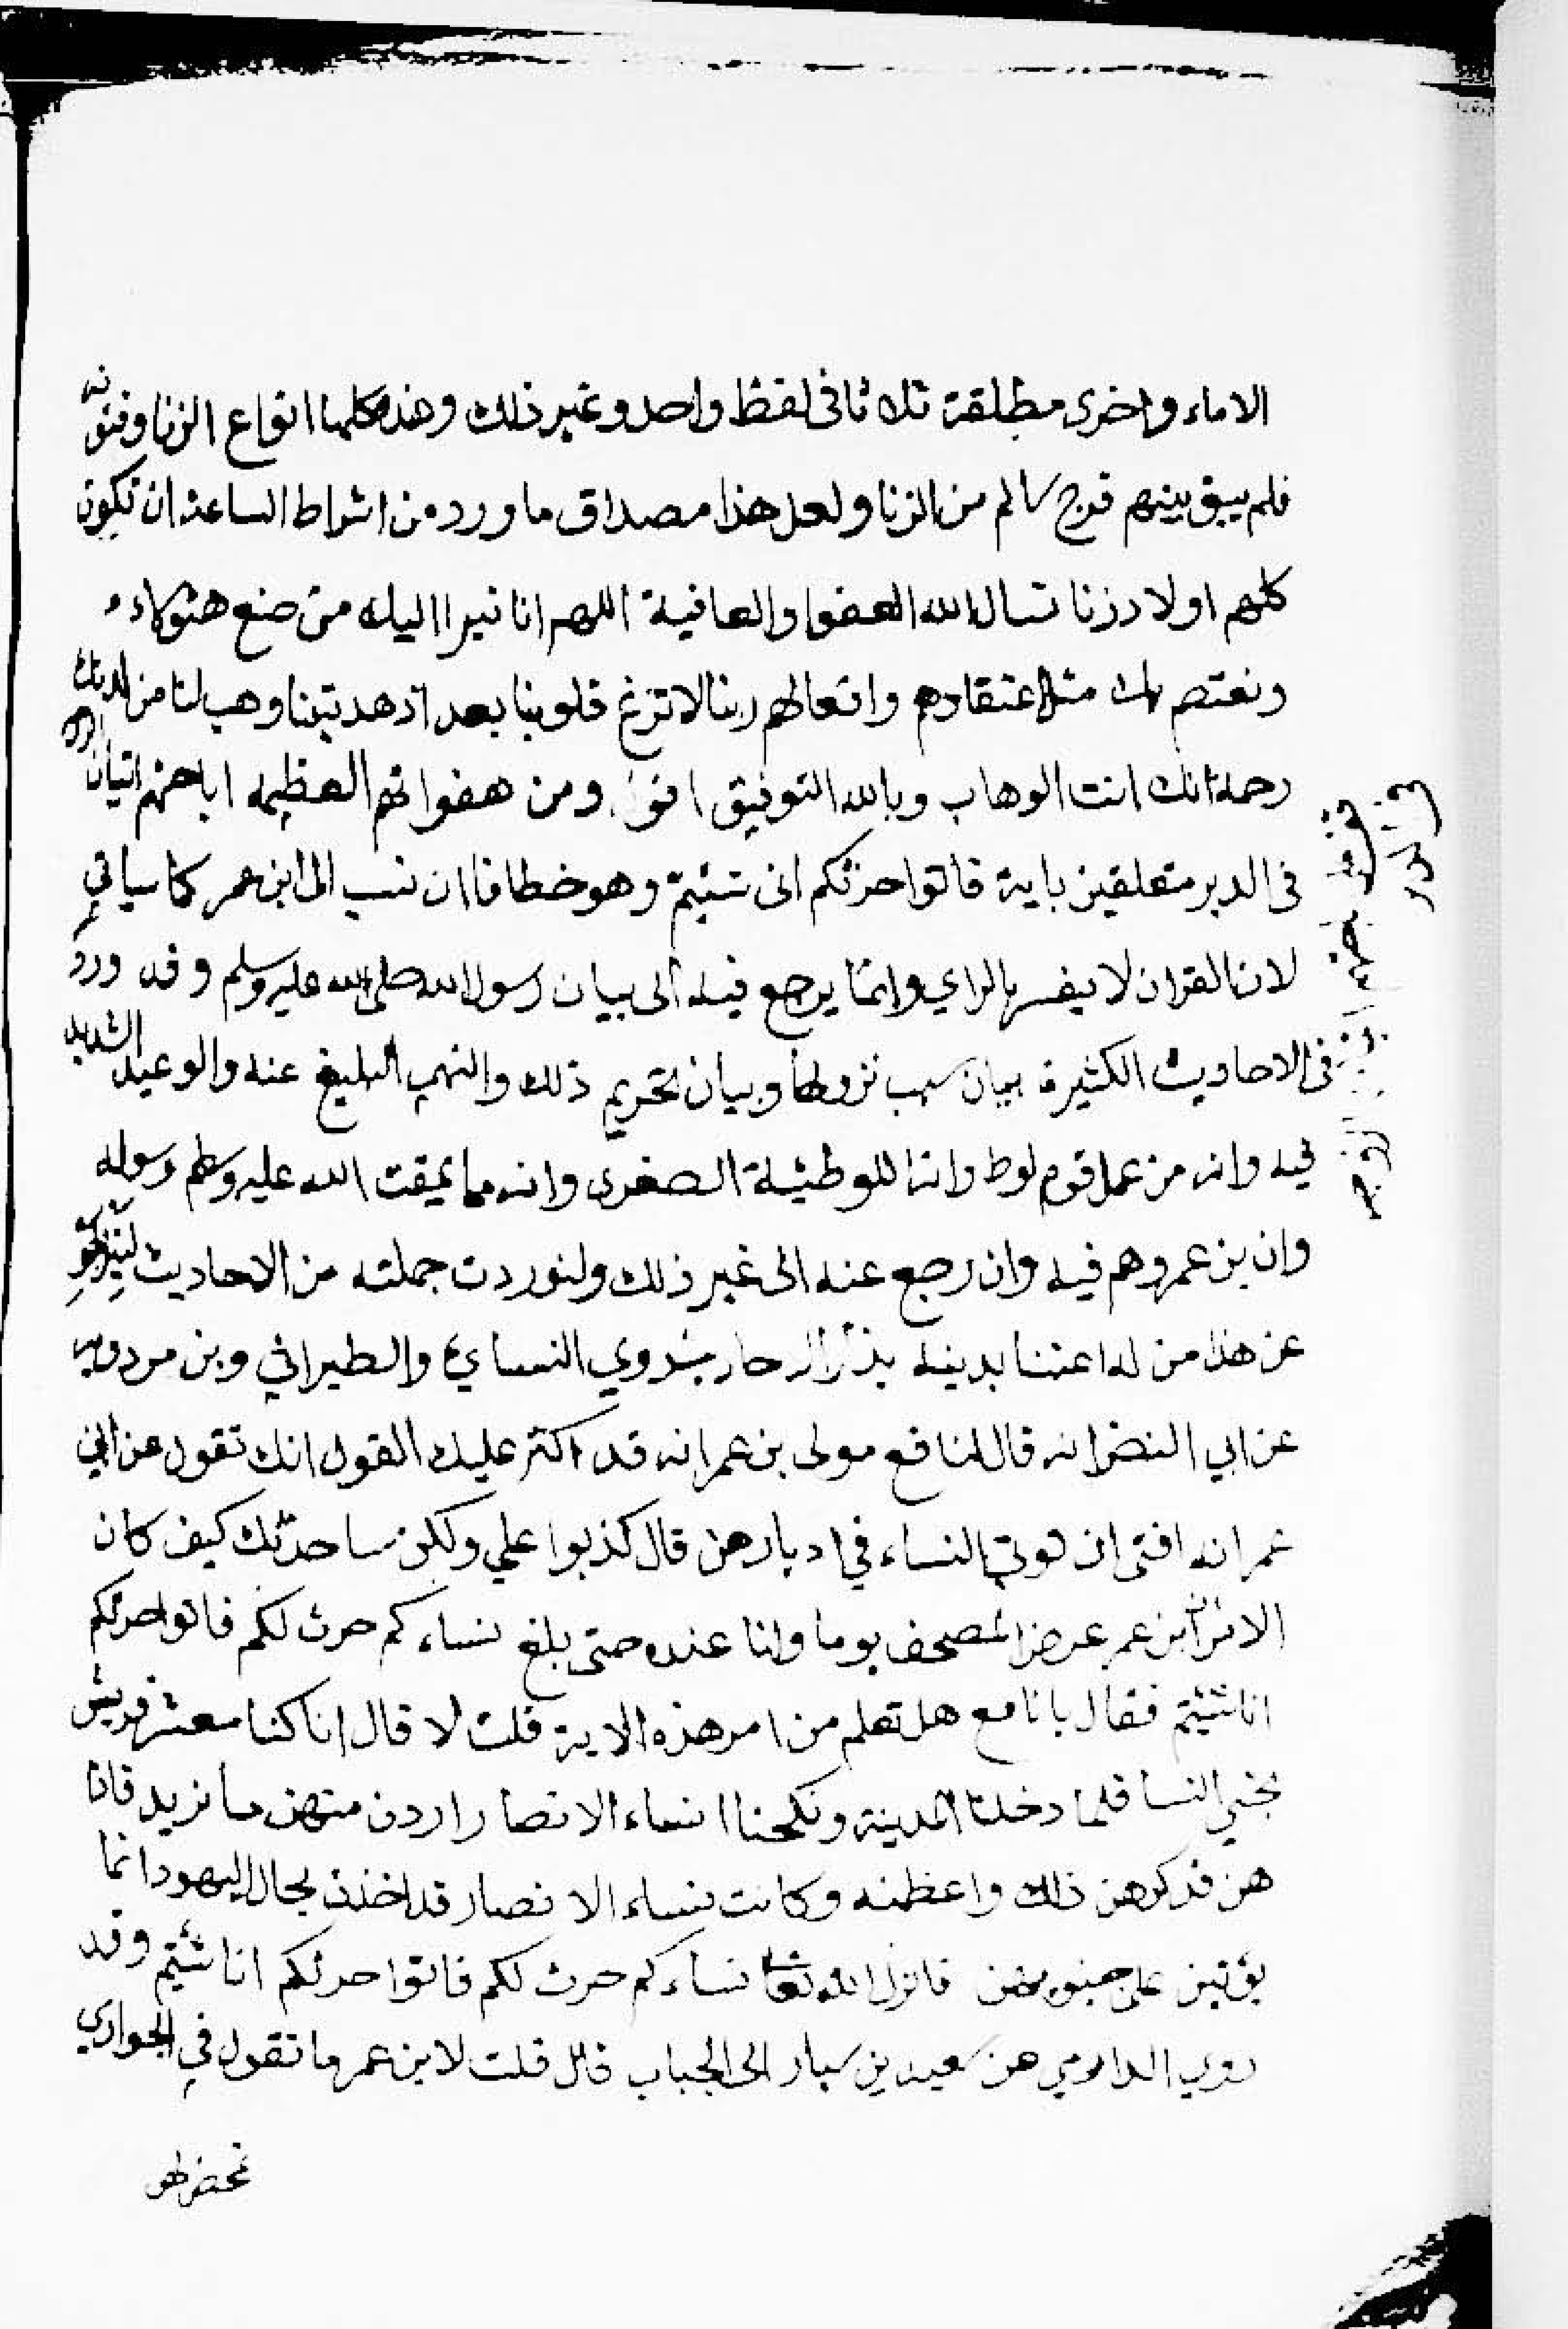 الاماء واخرى مطلقة ثلاثا في لفظ واحد وغير ذلك وهذه كلها انواع الزنا وفنونه
فلم يبق بينهم فرج سالم من الزنا ولعل هذا مصداق ما ورد من اشراط الساعة ان تكون
كلهم اولاد زنا نسال الله العفو والعافية اللهم انا نبرا اليك من صنع هؤلاء
ونعتصم بك مثل اعتقادهم وافعالهم ربنا لا تزغ قلوبنا بعد اذ هديتنا وهب لنا من لدنك
رحمة انك انت الوهاب وبالله التوفيق ومن هفواتهم العظيمه اباحتهم اتيان
في الدبر متعلقين باية فاتوا حرثكم انى شئتم وهو خطا فاان نسب الى ابن عمر كما سياتي
لان القران لا يفسر بالراي وانما يرجع فيه الى بيان رسول الله صلى الله عليه وسلم وقد ورد
في الاحاديث الكثيرة بيان سبب نزولها وبيان تحريم ذلك والنهي البليغ عنه والوعيد الشديد
فيه وانه من عمل قوم لوط وانه اللوطية الصغرى وانه مما يمقت الله عليه وسلم رسوله
وان بن عمر وهم فيه وان رجع عنه الى غير ذلك ولنوردت جملته من الاحاديث
عن هذا من له اعتنا بدينه روي النساي والطبراني وبن مردويه
عن ابي النضر انه قال لنافع مولى بن عمر انه قد اكثر عليك القول انك تقول عن ابن
عمر انه افتى ان توتى النساء في ادبارهن قال كذبوا علي ولكن ساحدثك كيف كان
الامر ان ابن عمر عرض المصحف يوما وانا عنده حتى بلغ نساءكم حرث لكم فاتوا حرثكم
انا شئتم فقال يا نافع هل تعلم من امر هذه الاية قلت لا قال انا كنا معشر قريش
نجبي النسا فلما دخلنا المدينة ونكحنا نساء الانصار اردن منهن ما نريد فاذا
هن قد كرهن ذلك واعظمنه وكانت نساء الانصار قد اخذن بحال اليهود انما
يؤتين على جنوبهن فانزل الله تعا نساءكم حرث لكم فاتوا حرثكم انا شئتم وقد
روي الدارمي عن سعيد بن يسار الى الحباب قال قلت لابن عمر ما تقول في الجواري